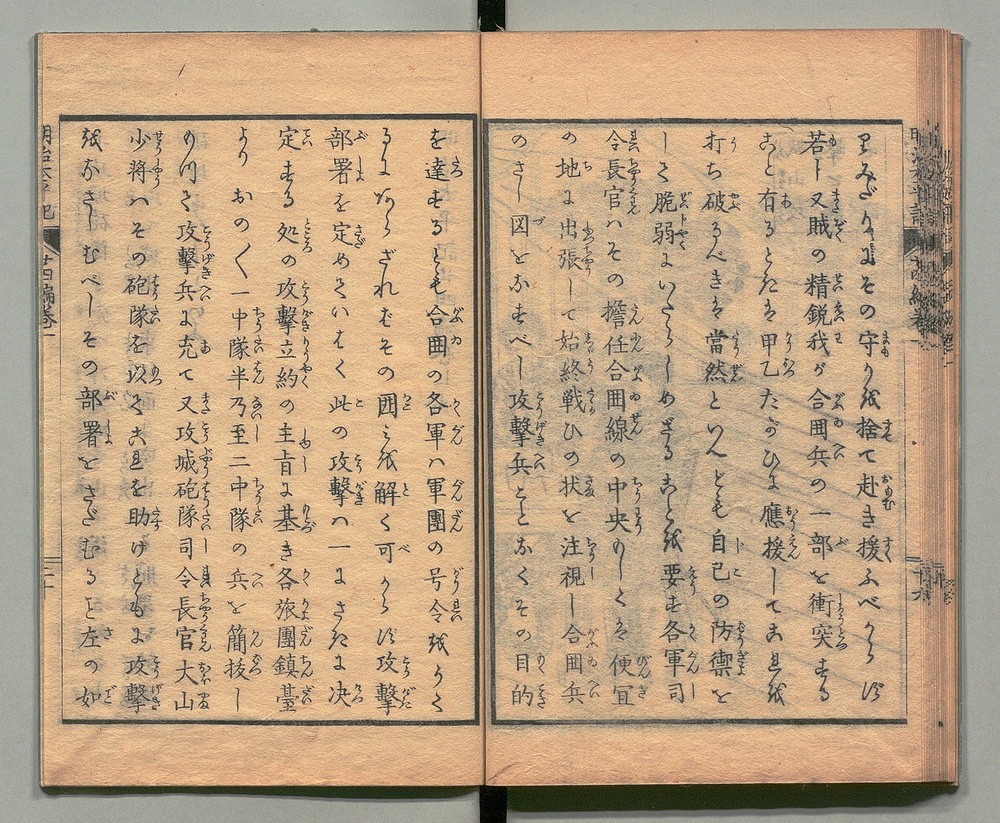 りみだりにその守りを捨て赴き援ふべからず
若し又賊の精鋭我が合囲兵の一部を衝突する
こと有るときは甲乙たがひに應援してこれを
打ち破るべきは當然といへども自己の防禦を
して脆弱にいたらしめざることを要す各軍司
令長官ハその擔任合囲線の中央もしくは便宜
の地に出張して始終戦ひの状を注視し合囲兵
のさし図をなすべし攻擊兵とおなくその目的
を達するとも合囲の各軍ハ軍團の号令をうく
るにあらざればその囲みを解く可からず攻擊
部署を定めていはく此の攻擊ハ一にさきに決
定する処の攻擊立約の主旨に基き各旅團鎮臺
より おの〱一中隊半乃至二中隊の兵を簡抜し
もつて攻擊兵に充て又攻城砲隊司令長官大山
少将ハその砲隊を以てこれを助けともに攻擊
をなさしむべしその部署をさだむると左の如
明治太平記
廿四編巻一
二十